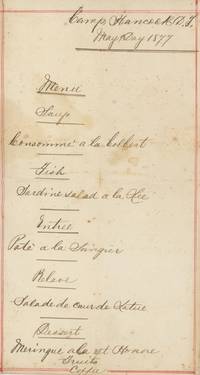 Camp Hancock D.T.
May Day 1877
Menu
Soup
Consommé a la Colbert
Fish
Sardine salad a la Lie
Entree
Paté a la
Releve
Salade de cœur de Latue
Dessert
Meringue a la st Honore
Fruits
Coffee